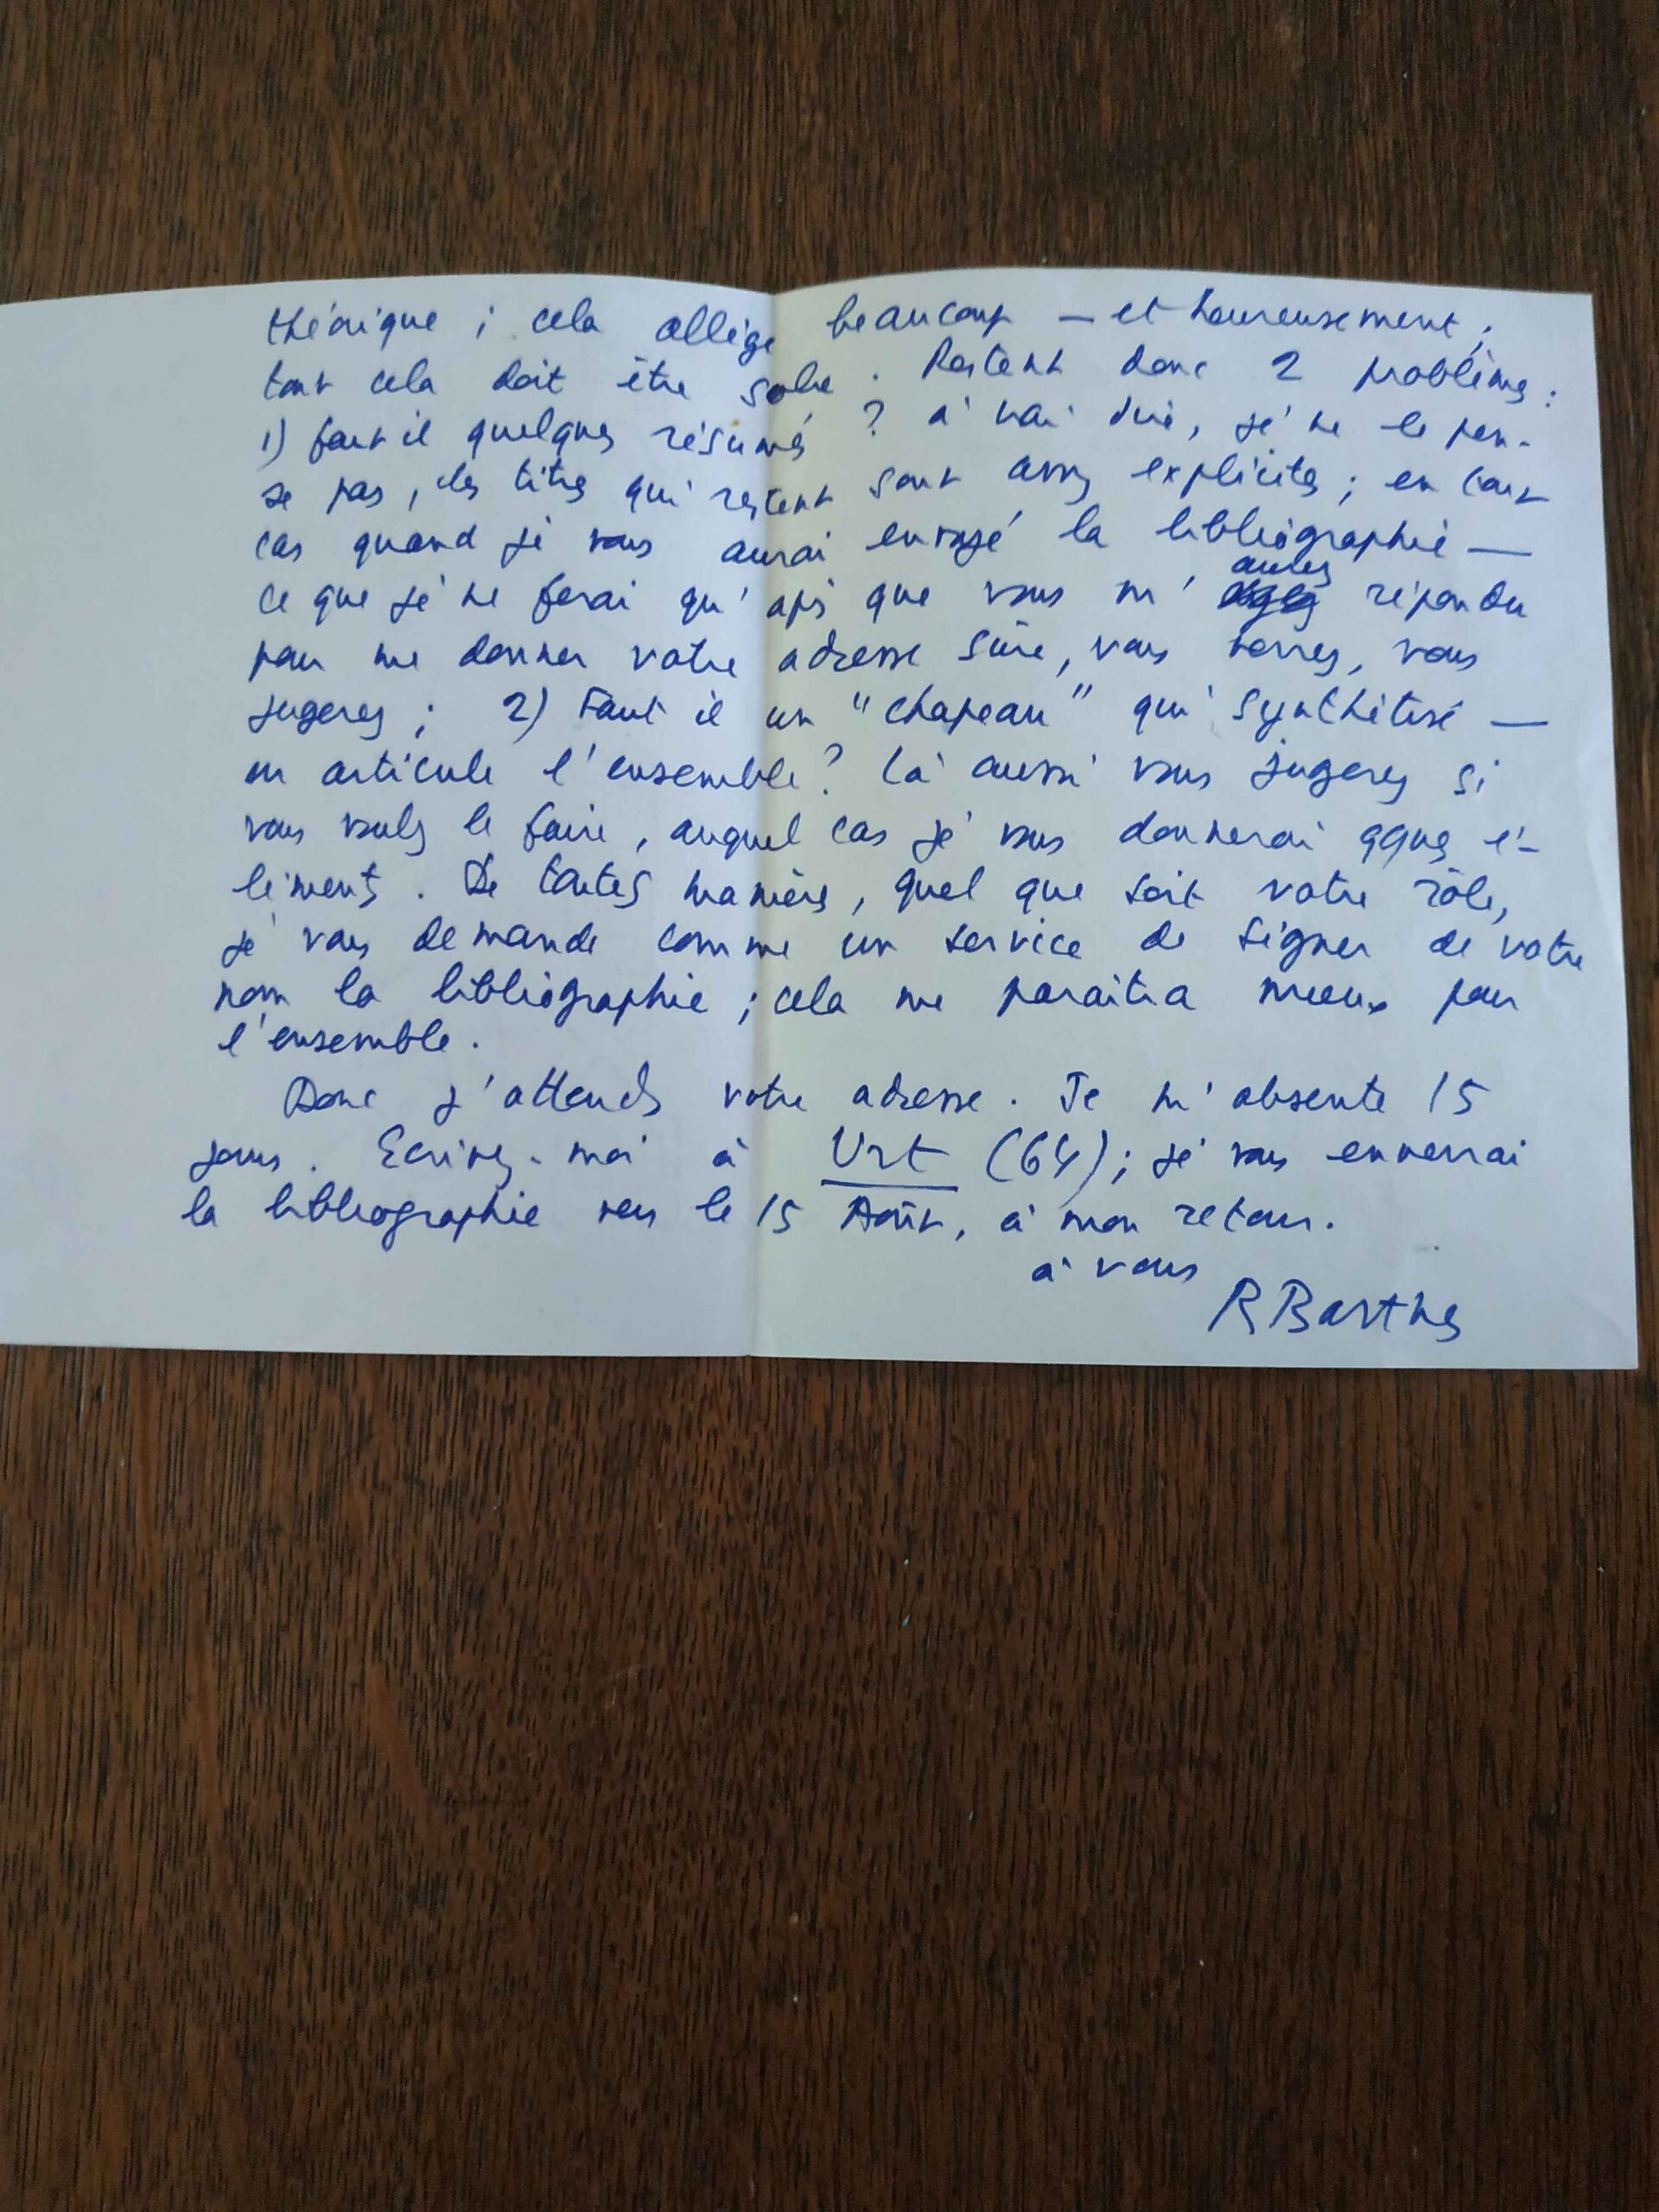 théorique ; cela allège beaucoup — et heureusement ;
tout cela doit être sobre. Restent donc 2 problèmes :
1) faut il quelques résumés ? à vrai dire, je ne le pen-
se pas, les titres qui restent sont assez explicites ; en tout
cas quand je vous aurai envoyé la bibliographie —
ce que je ne ferai qu'après que vous m'aurez répondu
pour me donner votre adresse sûre, vous verrez, vous
jugerez ; 2) Faut il un "chapeau" qui synthétise —
ou articule l'ensemble ? là aussi vous jugerez si
vous voulez le faire, auquel cas je vous donnerai qques é-
léments. De toutes manières, quel que soit votre rôle,
je vous demande comme un service de signer de votre
nom la bibliographie ; cela me paraîtra mieux pour
l'ensemble.
Donc j'attends votre adresse. Je m'absente 15
jours. Ecrivez-moi à Urt (64) ; je vous enverrai
la bibliographie vers le 15 Août, à mon retour.
à vous
R Barthes